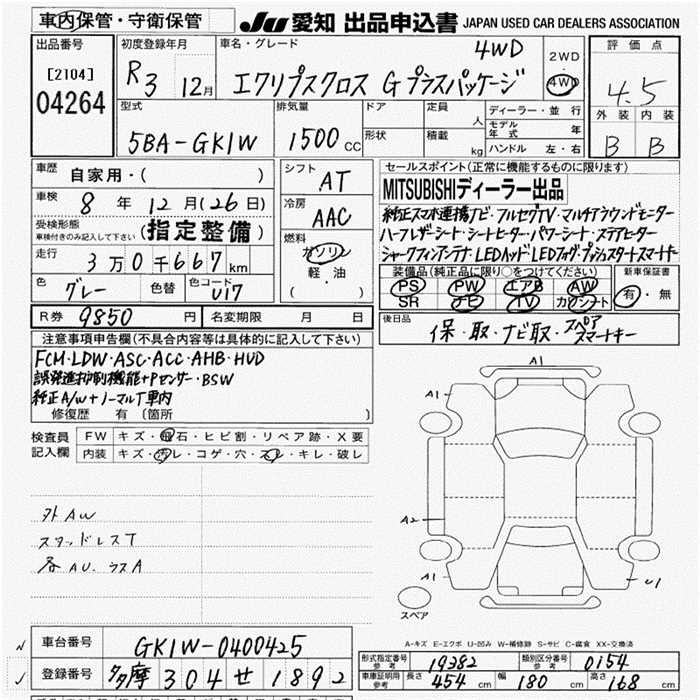 車内保管・守衛保管
JU 愛知 出品申込書 JAPAN USED CAR DEALERS ASSOCIATION
出品番号
[2104]
04264
初度登録年月
R3 12月
車名・グレード
4WD
エクリプスクロス Gプラスパッケージ
2WD
4WD
評価点
4.5
外装 内装
B B
型式
5BA-GK1W
排気量
1500 CC
ドア
形状
定員 人
積載 kg
ディーラー・並行
モデル年式 年
ハンドル 左・右
車歴
自家用・( )
車検
8年 12月(26日)
受検形態
車検付きのみ記入して下さい
(指定整備)
走行
3万0千667km
色
グレー
色替
色コード
U17
シフト
AT
冷房
AAC
燃料
ガソリン
軽・油
( )
セールスポイント(正常に機能するものに限ります)
MITSUBISHIディーラー出品
純正スマホ連携ナビ・フルセグTV・マルチアラウンドモニター
ハーフレザーシート・シートヒーター・パワーシート・ステアヒーター
シャークフィンアンテナ・LEDヘッド・LEDフォグ・プッシュスタートスマートキー
装備品(純正品に限り○をつけてください)
PS PW エアB AW
SR ナビ TV カワシート
新車保証書
有・無
R券 9850 円
名変期限 月 日
後日品
保・取・ナビ取・スペアスマートキー
注意事項申告欄(不具合内容等は具体的に記入して下さい)
FCM・LDW・ASC・ACC・AHB・HUD
誤発進抑制機能+Pセンサー・BSW
純正A/W+ノーマルT車内
修復歴 有 (箇所 )
検査員記入欄
FW キズ・飛石・ヒビ割・リペア跡・X要
内装 キズ・汚レ・コゲ・穴・スレ・キレ・破レ
外AW
スタッドレスT
各AU.ウスA
A1
A1
A2
A1
U1
スペア
A-キズ E-エクボ U-凹み W-補修跡 S-サビ C-腐食 XX-交換済
車台番号 GK1W-0400425
登録番号 多摩 304 せ 1892
形式指定番号 参考 19382
類別区分番号 参考 0154
車庫証明用 参考 長さ 454 cm 幅 180 cm 高さ 168 cm